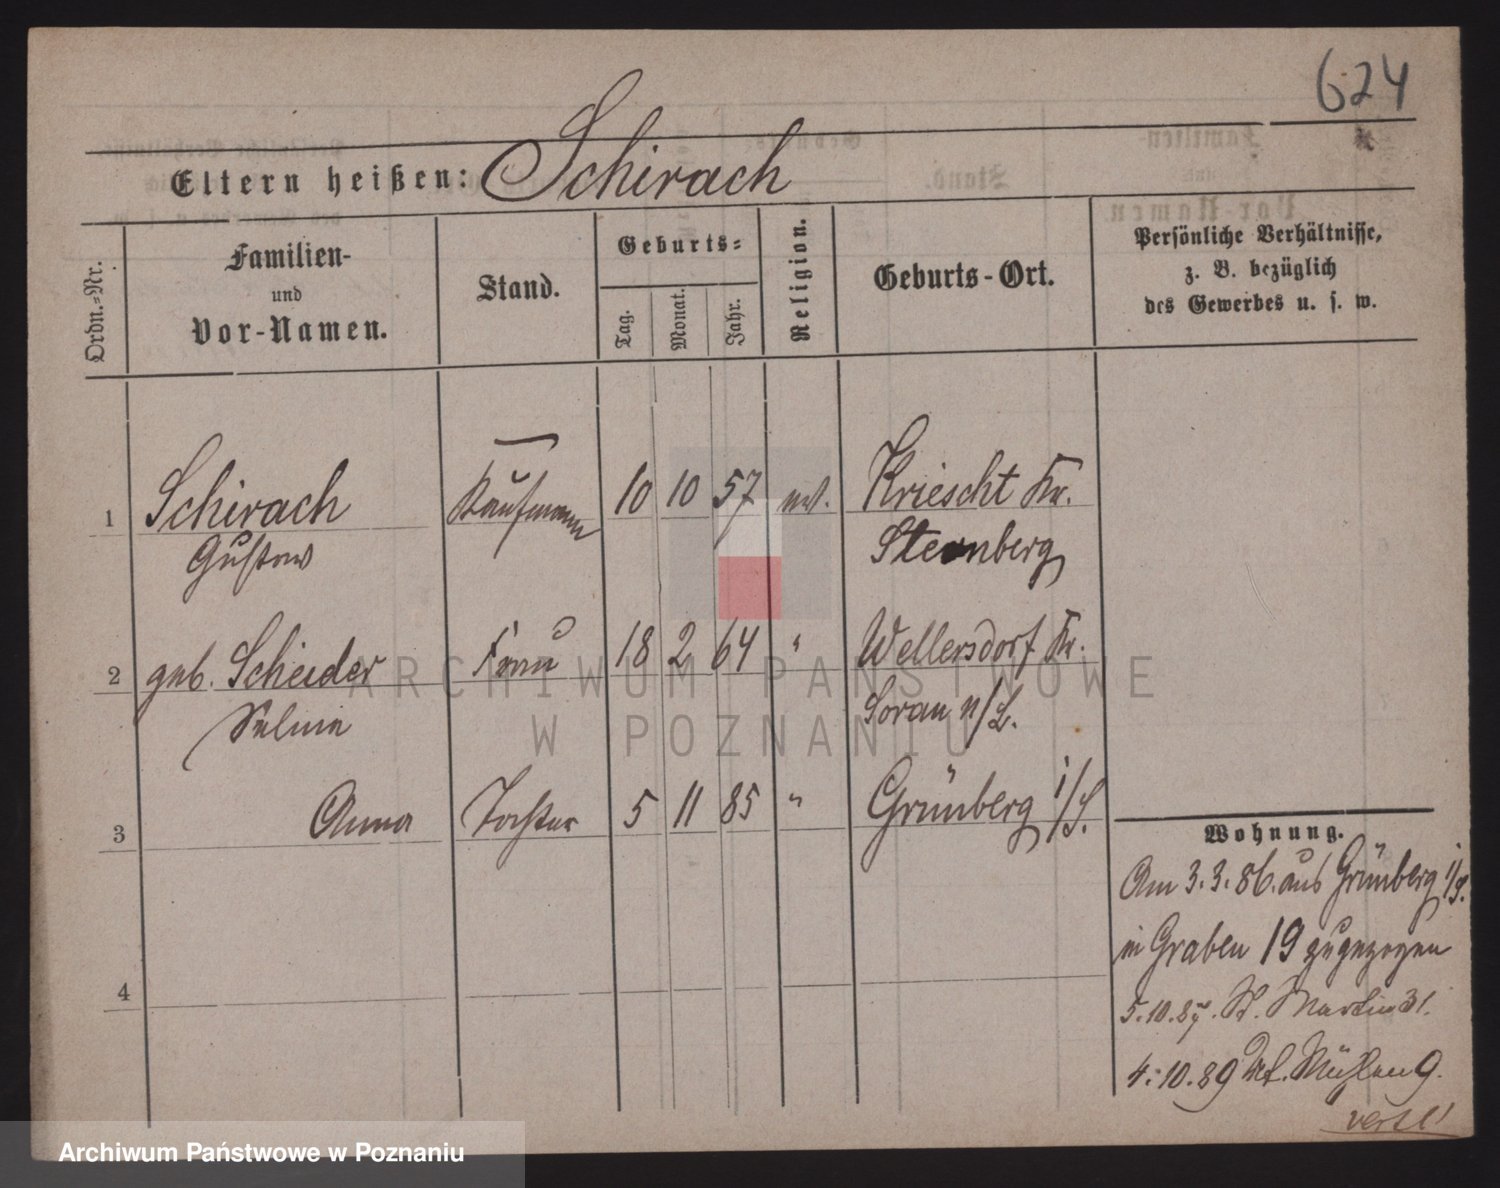 624
Eltern heißen: Schirach
Ordn.-Nr.
Familien-
und
Vor-Namen.
Stand.
Geburts-
Tag.
Monat.
Jahr.
Religion.
Geburts-Ort.
Persönliche Verhältnisse,
z. B. bezüglich
des Gewerbes u. s. w.
1 Schirach Kaufmann 10 10 57 ev. Kriescht Kr.
Gustav Sternberg
2 geb. Scheider Frau 18 2 64 " Wellersdorf Kr.
Selma Sorau n/L.
3 Anna Tochter 5 11 85 " Grünberg i/S.
4
Wohnung.
Am 3.3.86. aus Grünberg i/S.
in Graben 19 zugezogen
5.10.87. St. Martin 31.
4.10.89 Mühlen 9.
ARCHIWUM PAŃSTWOWE
W POZNANIU
Archiwum Państwowe w Poznaniu